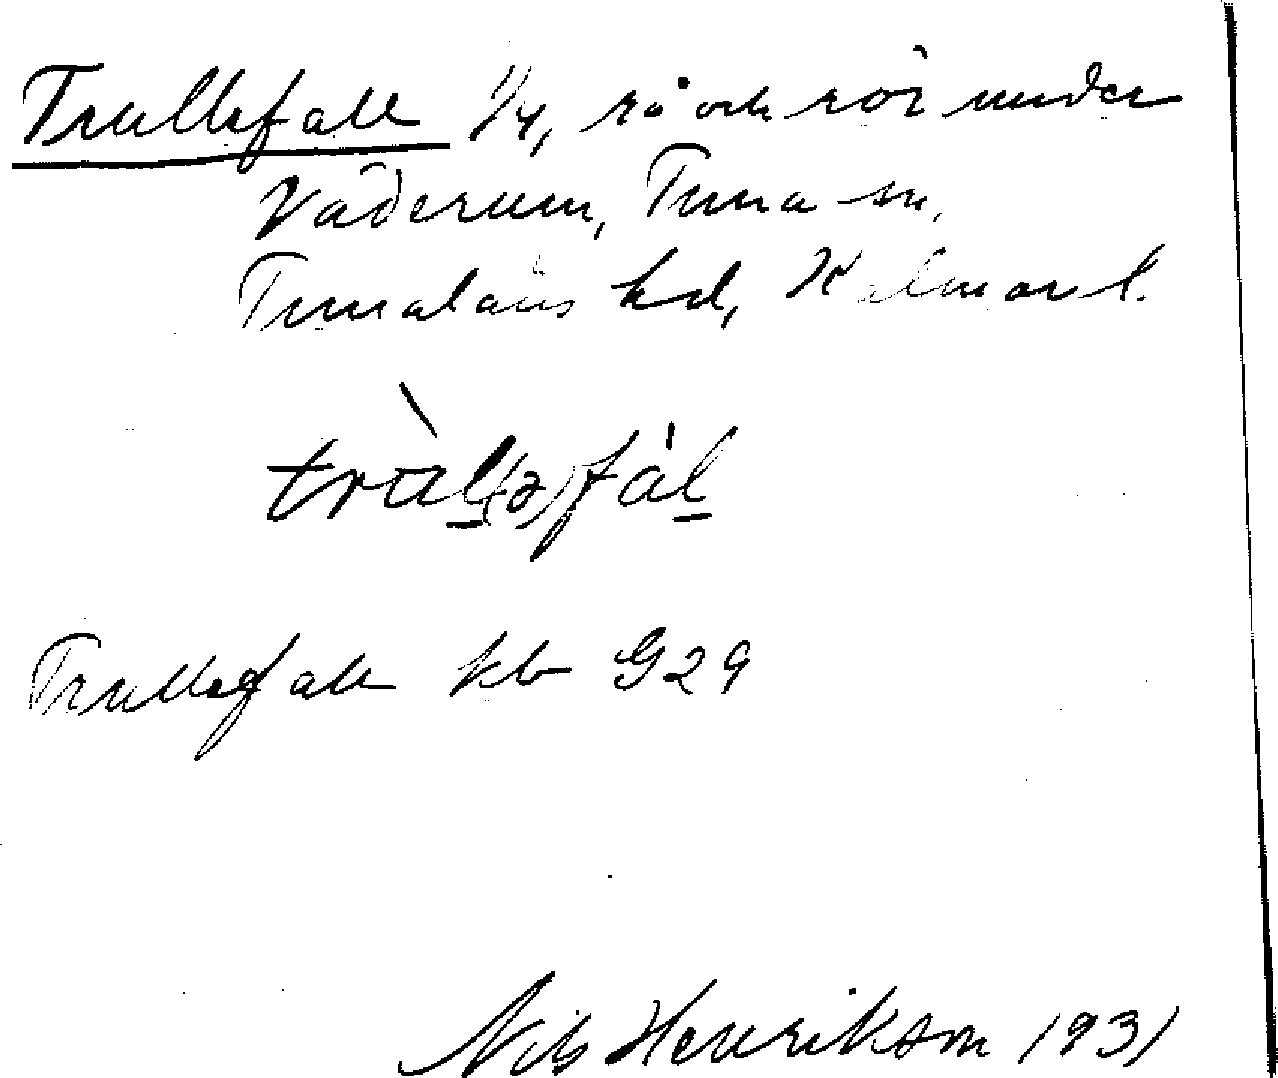 Trullefall 1/4, rå och rör under
Väderum, Tuna sn,
Tunaläns hd, Kalmar l.
tràl(ə)fál
Trullefall kb G29
Nils Henrikson 1931